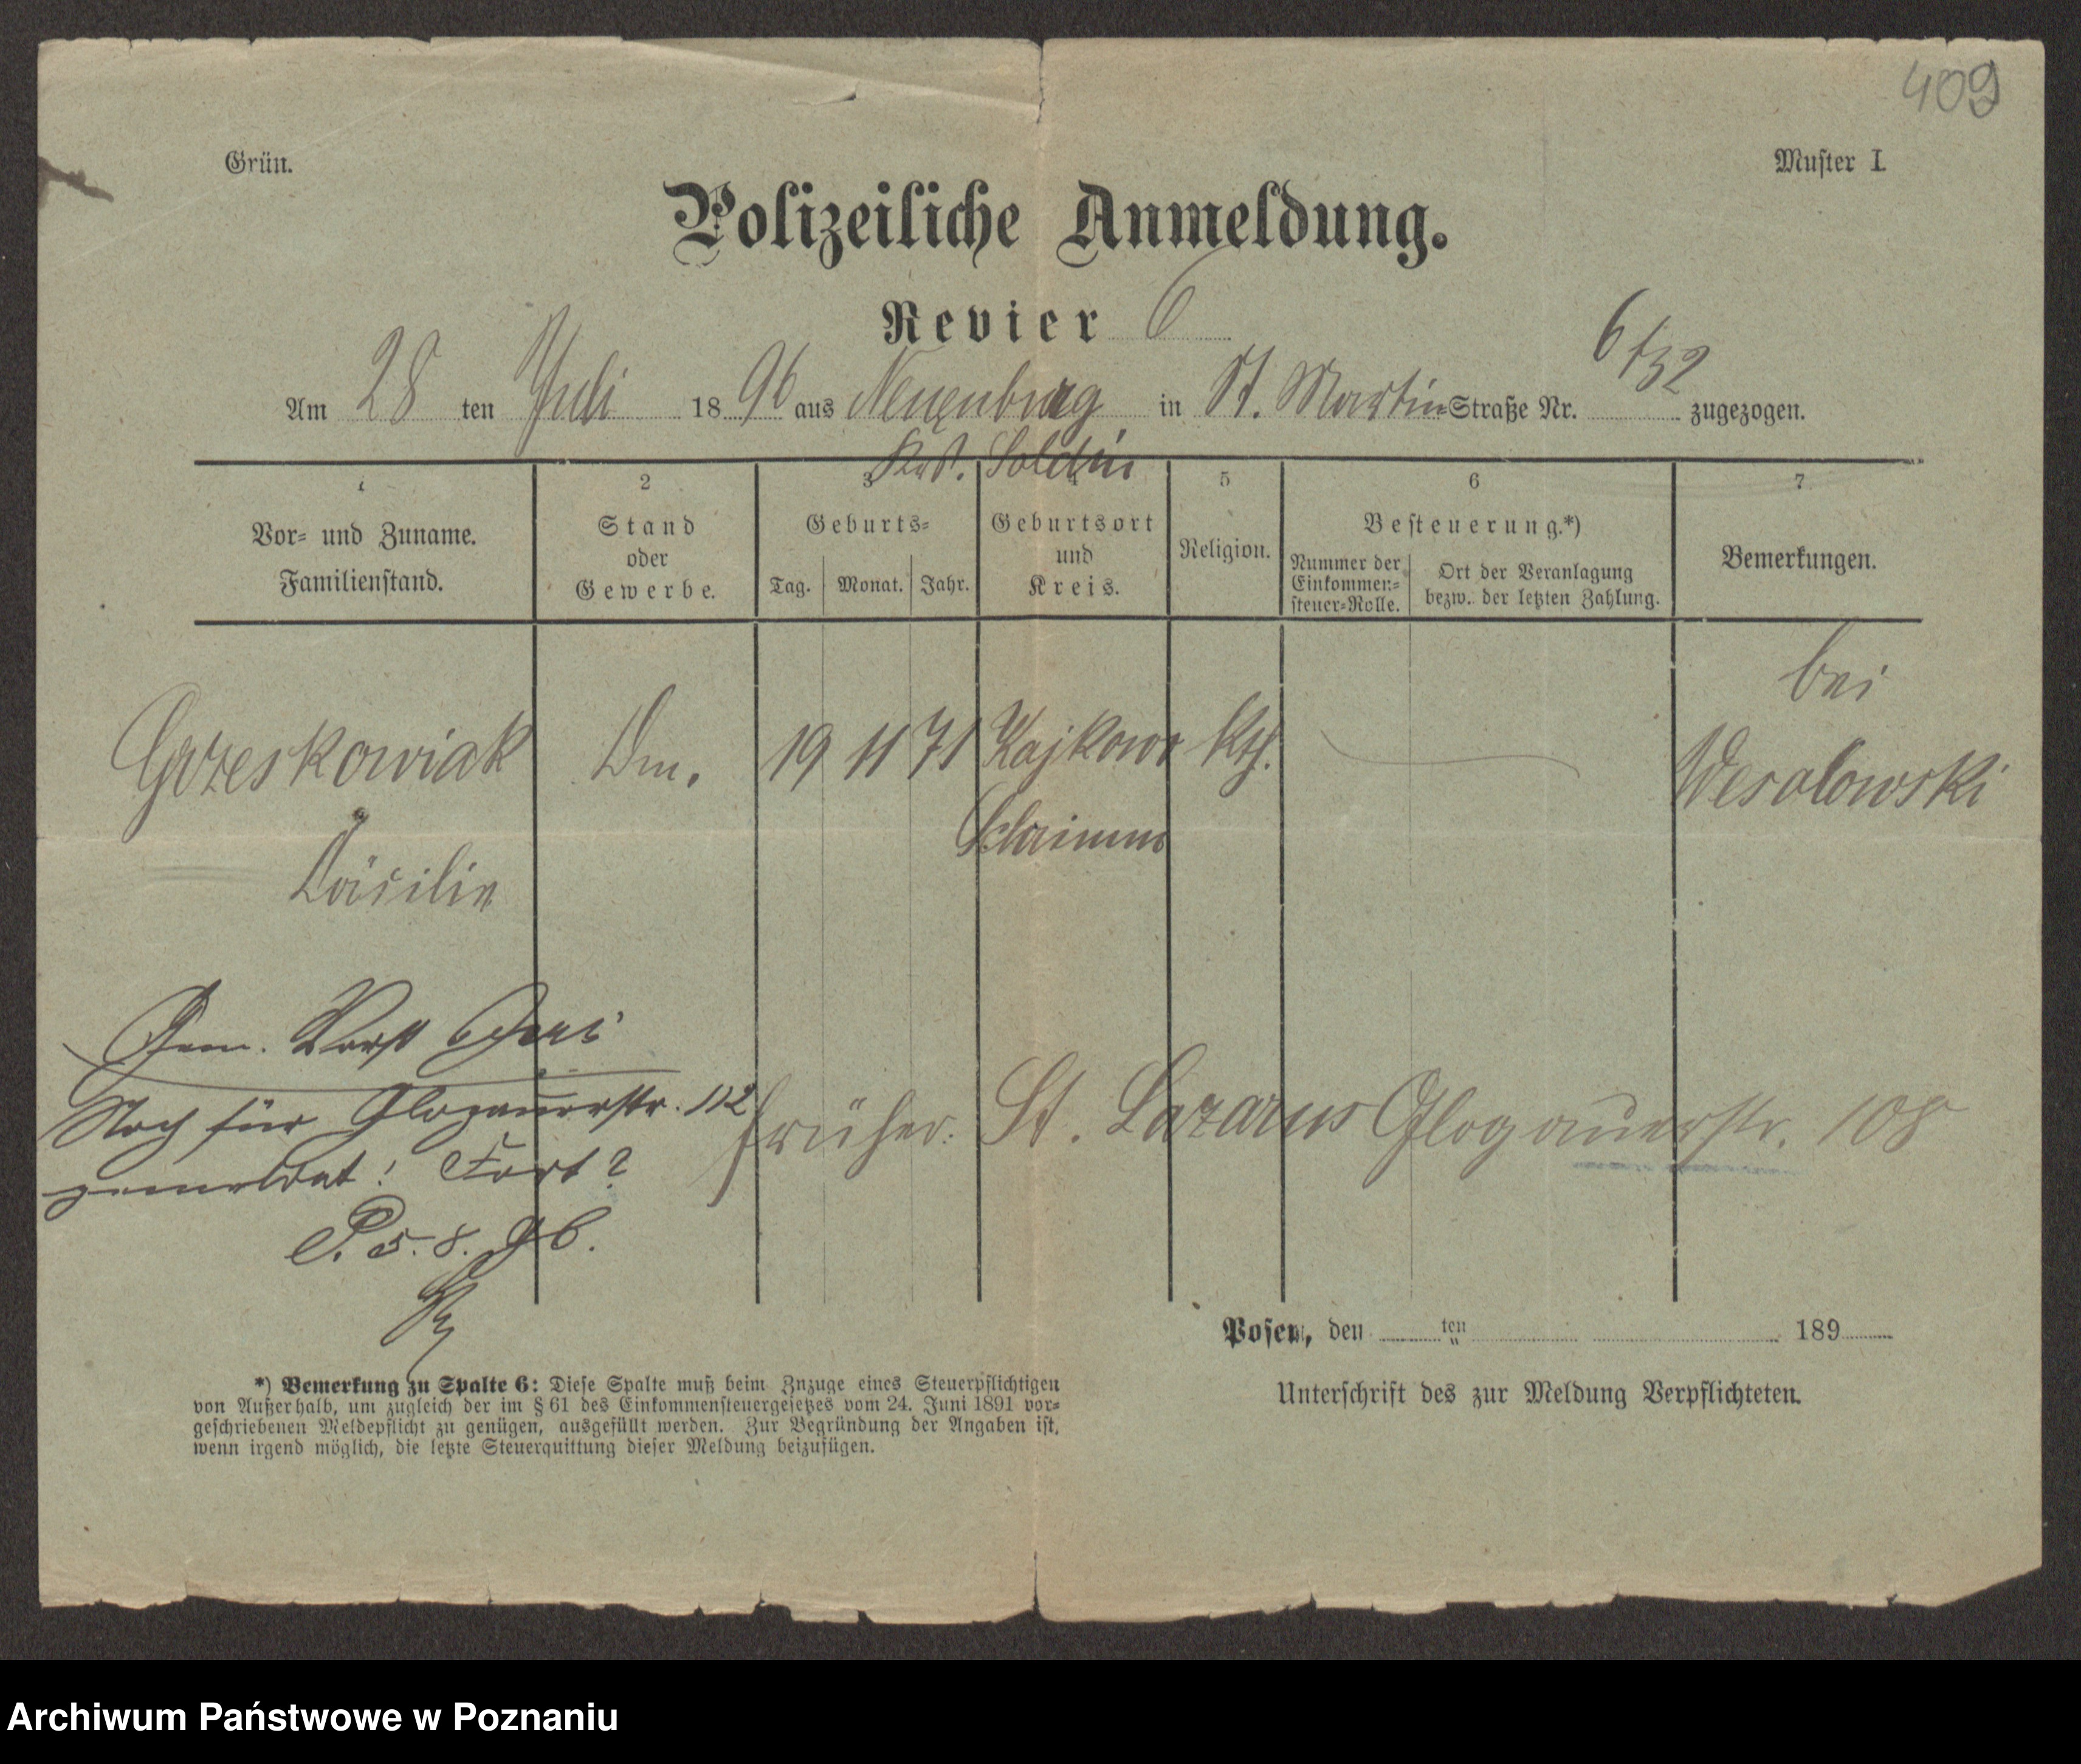 409
Grün.
Muster I.
Polizeiliche Anmeldung.
Revier 6
Am 28 ten Juli 1896 aus Neuenburg in St. Martin=Straße Nr. 6/32 zugezogen.
Soldin
1 2 3 4 5 6 7
Vor= und Zuname. Familienstand.
Stand oder Gewerbe.
Geburts=
Tag. Monat. Jahr.
Geburtsort und Kreis.
Religion.
Besteuerung.*)
Nummer der Einkommen=steuer=Rolle.
Ort der Veranlagung bezw. der letzten Zahlung.
Bemerkungen.
bei
Grzeskowiak Dm. 19 11 71 Kajkowo Kth. Wesolowski
Schrimm
Cäcilie
Gem. Vorst
Noch für Glogauerstr. 112
gemeldet! Fort?
P. 5. 8. 96.
früher: St. Lazarus Glogauerstr. 108
Posen, den ten 189
Unterschrift des zur Meldung Verpflichteten.
*) Bemerkung zu Spalte 6: Diese Spalte muß beim Znzuge eines Steuerpflichtigen
von Außerhalb, um zugleich der im § 61 des Einkommensteuergesetzes vom 24. Juni 1891 vor=
geschriebenen Meldepflicht zu genügen, ausgefüllt werden. Zur Begründung der Angaben ist,
wenn irgend möglich, die letzte Steuerquittung dieser Meldung beizufügen.
Archiwum Państwowe w Poznaniu